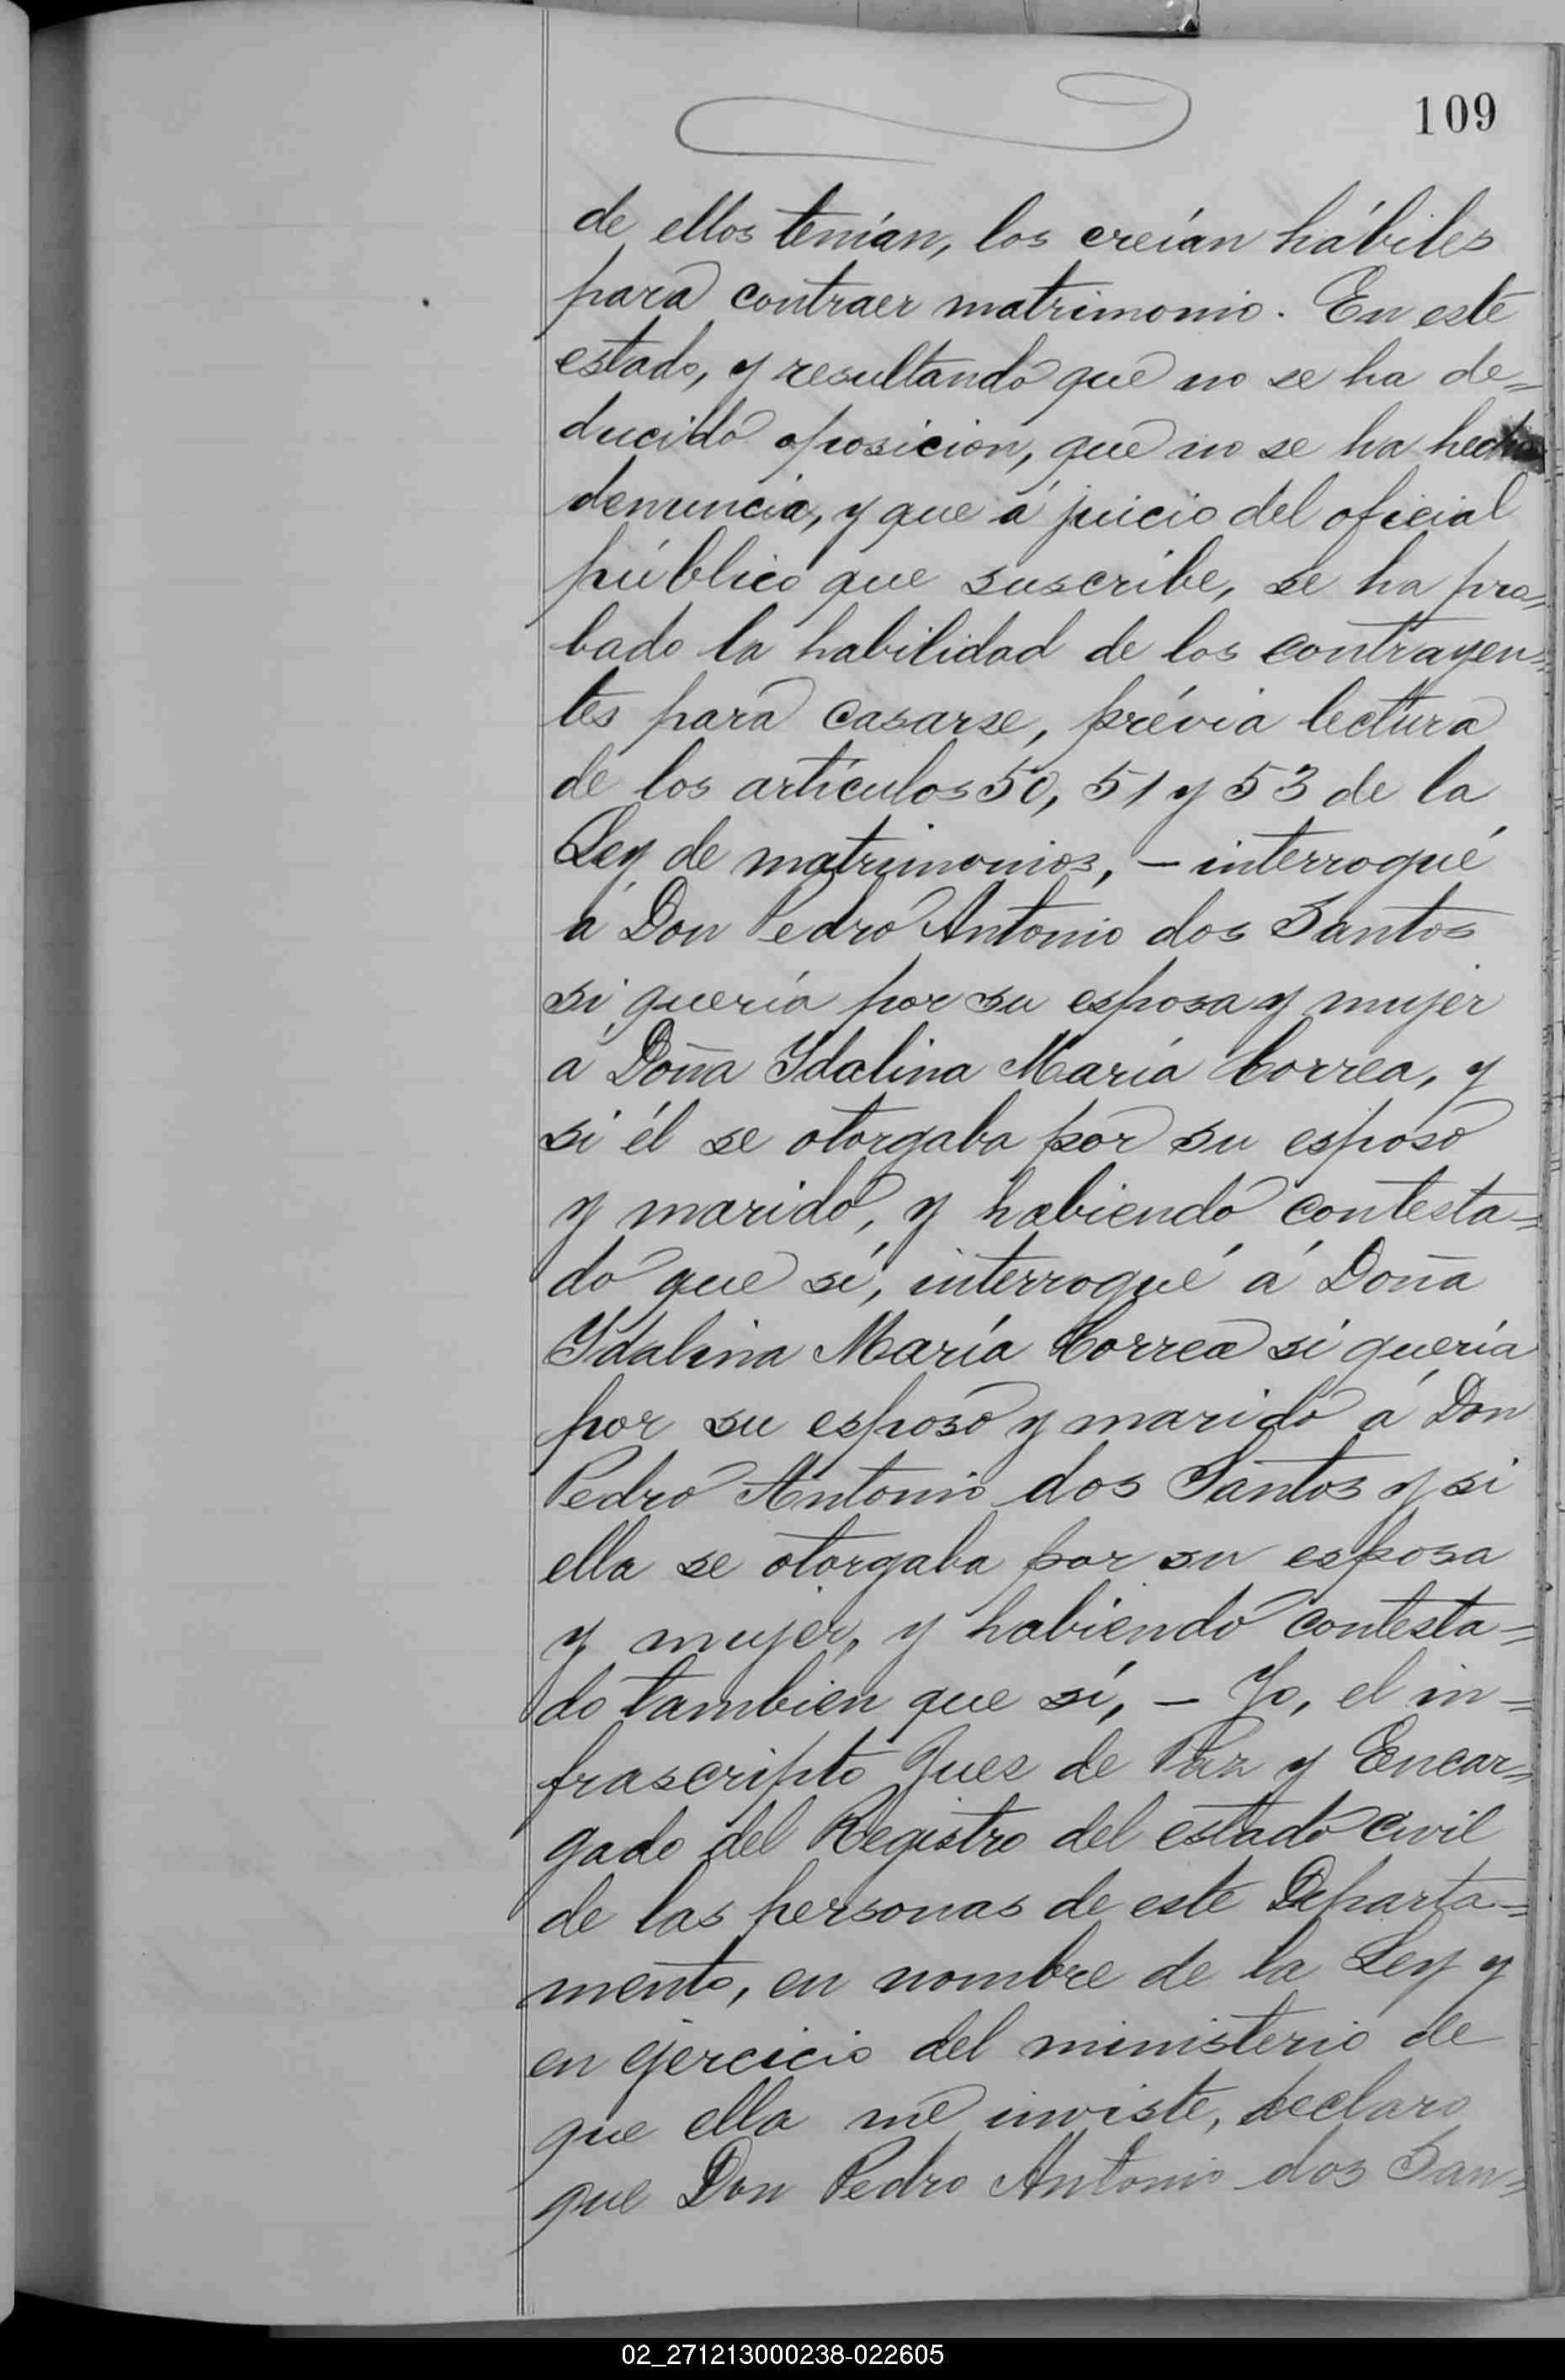 109
de ellos tenían, los creían hábiles
para contraer matrimonio. En este
estado, y resultando que no se ha de=
ducido oposicion, que no se ha hecho
denuncia, y que á juicio del oficial
público que suscribe, se ha pro=
bado la habilidad de los contrayen=
tes para casarse, prévia lectura
de los artículos 50, 51 y 53 de la
Ley de matrimonios, – interrogué
á Don Pedro Antonio dos Santos
si quería por su esposa y mujer
á Doña Ydalina María Correa, y
si él se otorgaba por su esposo
y marido, y habiendo contesta=
do que sí, interrogué á Doña
Ydalina María Correa si quería
por su esposo y marido á Don
Pedro Antonio dos Santos y si
ella se otorgaba por su esposa
y mujer, y habiendo contesta=
do tambien que sí, – Yo, el in=
frascripto Juez de Paz y Encar=
gado del Registro del estado civil
de las personas de este Departa=
mento, en nombre de la Ley y
en ejercicio del ministerio de
que ella me inviste, declaro
que Don Pedro Antonio dos San=
02_271213000238-022605